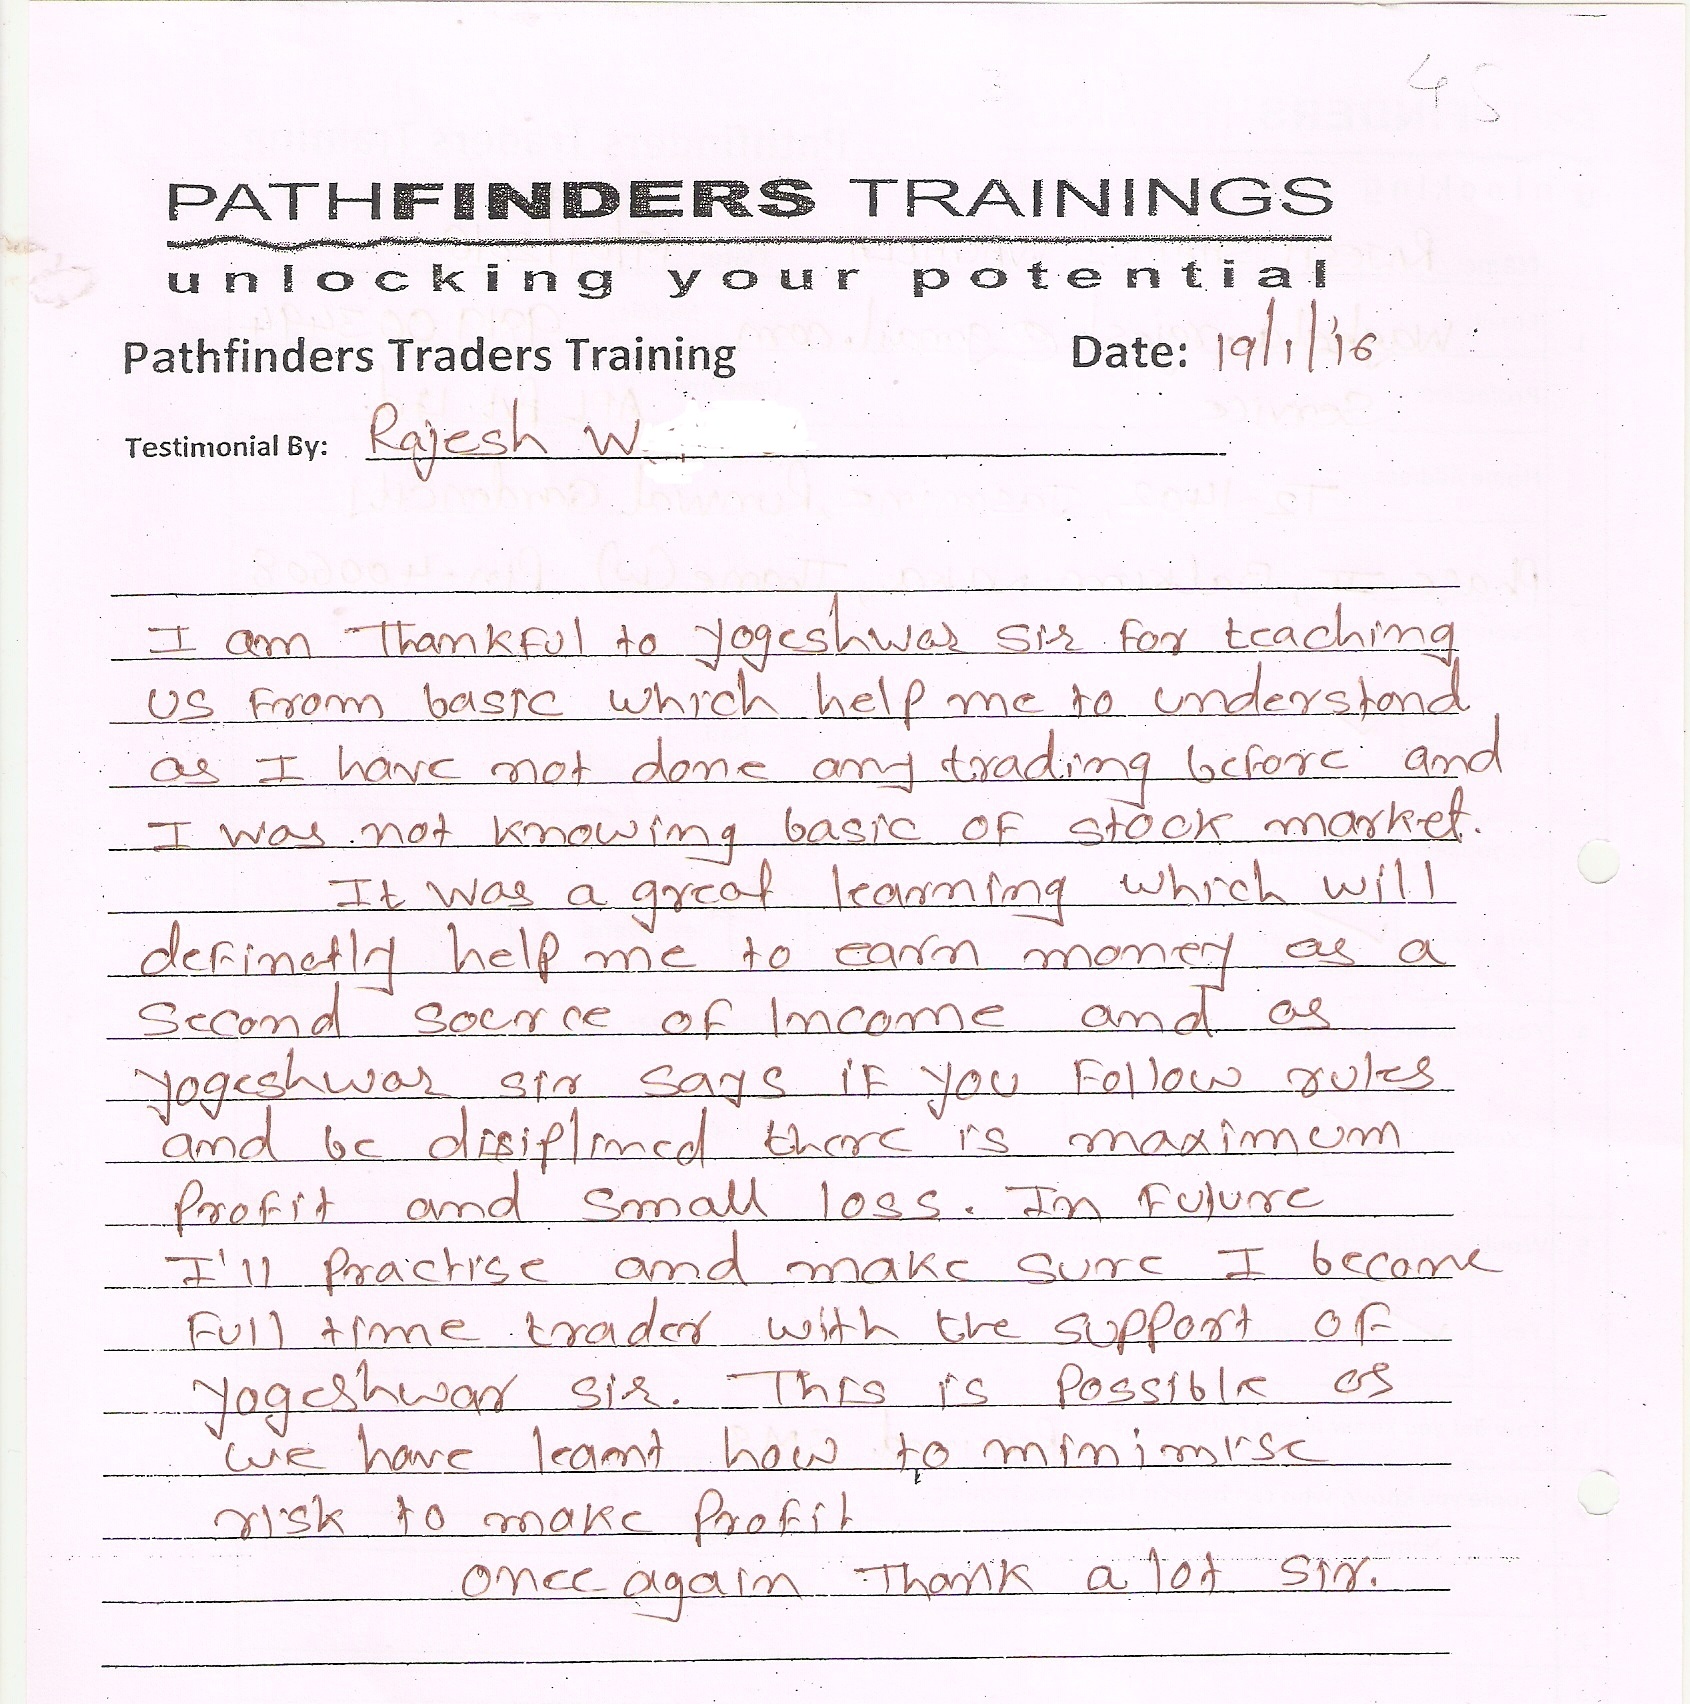 45
PATHFINDERS TRAININGS
unlocking your potential
Pathfinders Traders Training Date: 19/1/'16
Testimonial By: Rajesh W
I am Thankful to Yogeshwar sir for teaching
us from basic which help me to understand
as I have not done any trading before and
I was not knowing basic of stock market.
It was a great learning which will
definatly help me to earn money as a
Second socrce of Income and as
Yogeshwar sir says if you follow rules
and be disiplined there is maximum
Profit and small loss. In future
I'll practise and make sure I become
full time trader with the support of
Yogeshwar sir. This is possible as
we have learnt how to minimise
risk to make profit
once again Thank a lot Sir.